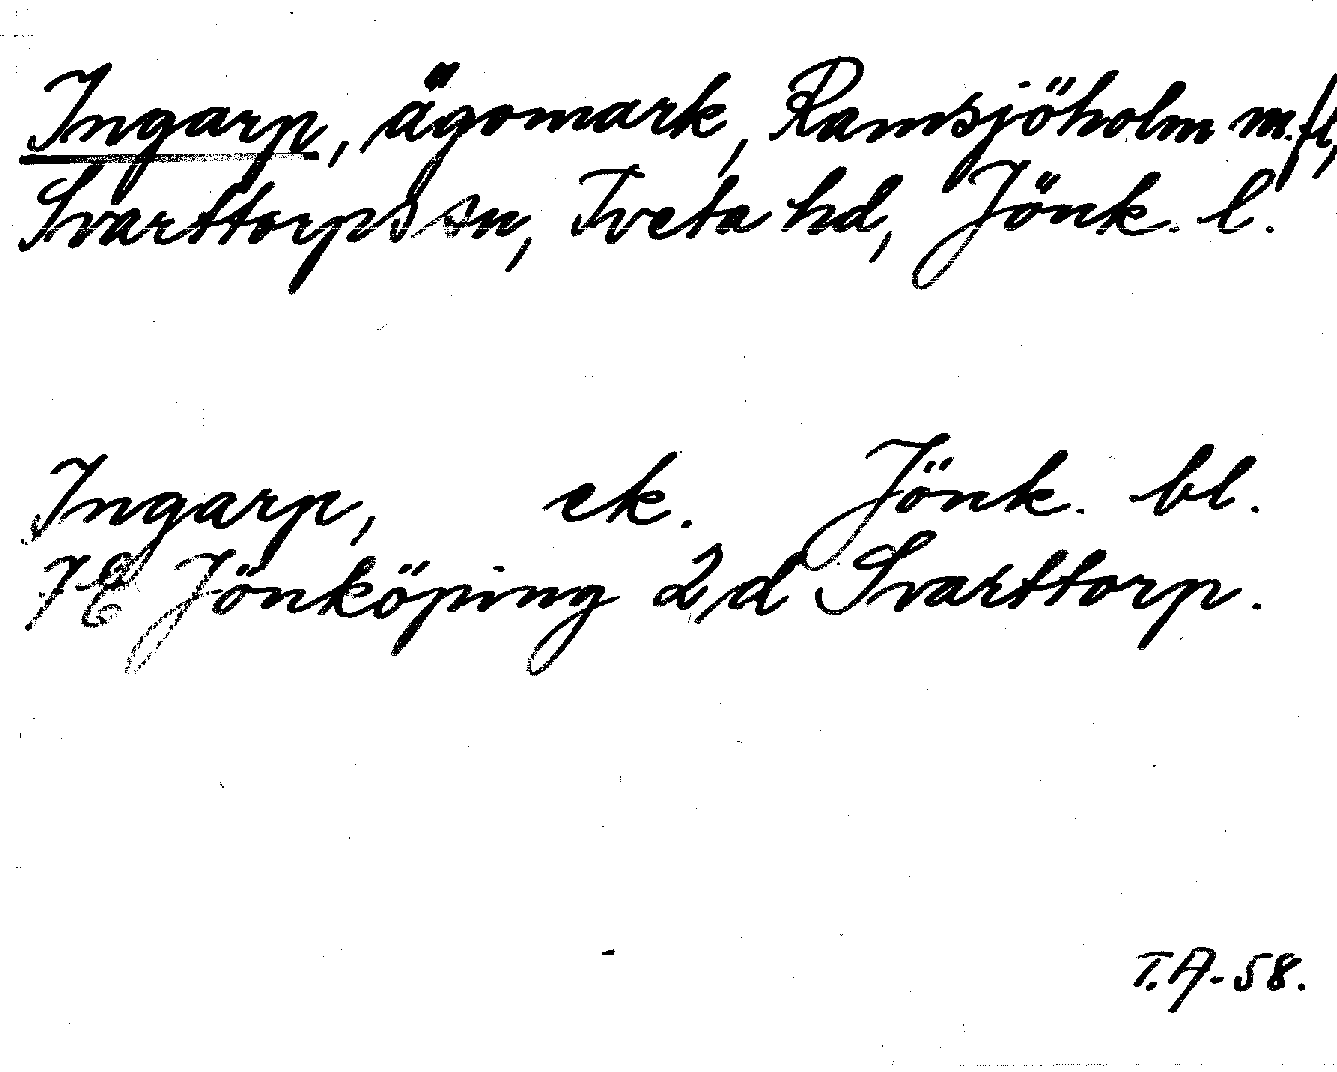 Ingarp, ägomark, Ramsjöholm m.fl,
Svarttorps sn, Tveta hd, Jönk. l.
Ingarp, ek. Jönk. bl.
7E Jönköping 2,d Svarttorp.
T.A-58.